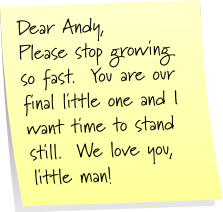 Dear Andy,
Please stop growing
so fast. You are our
final little one and I
want time to stand
still. We love you,
little man!